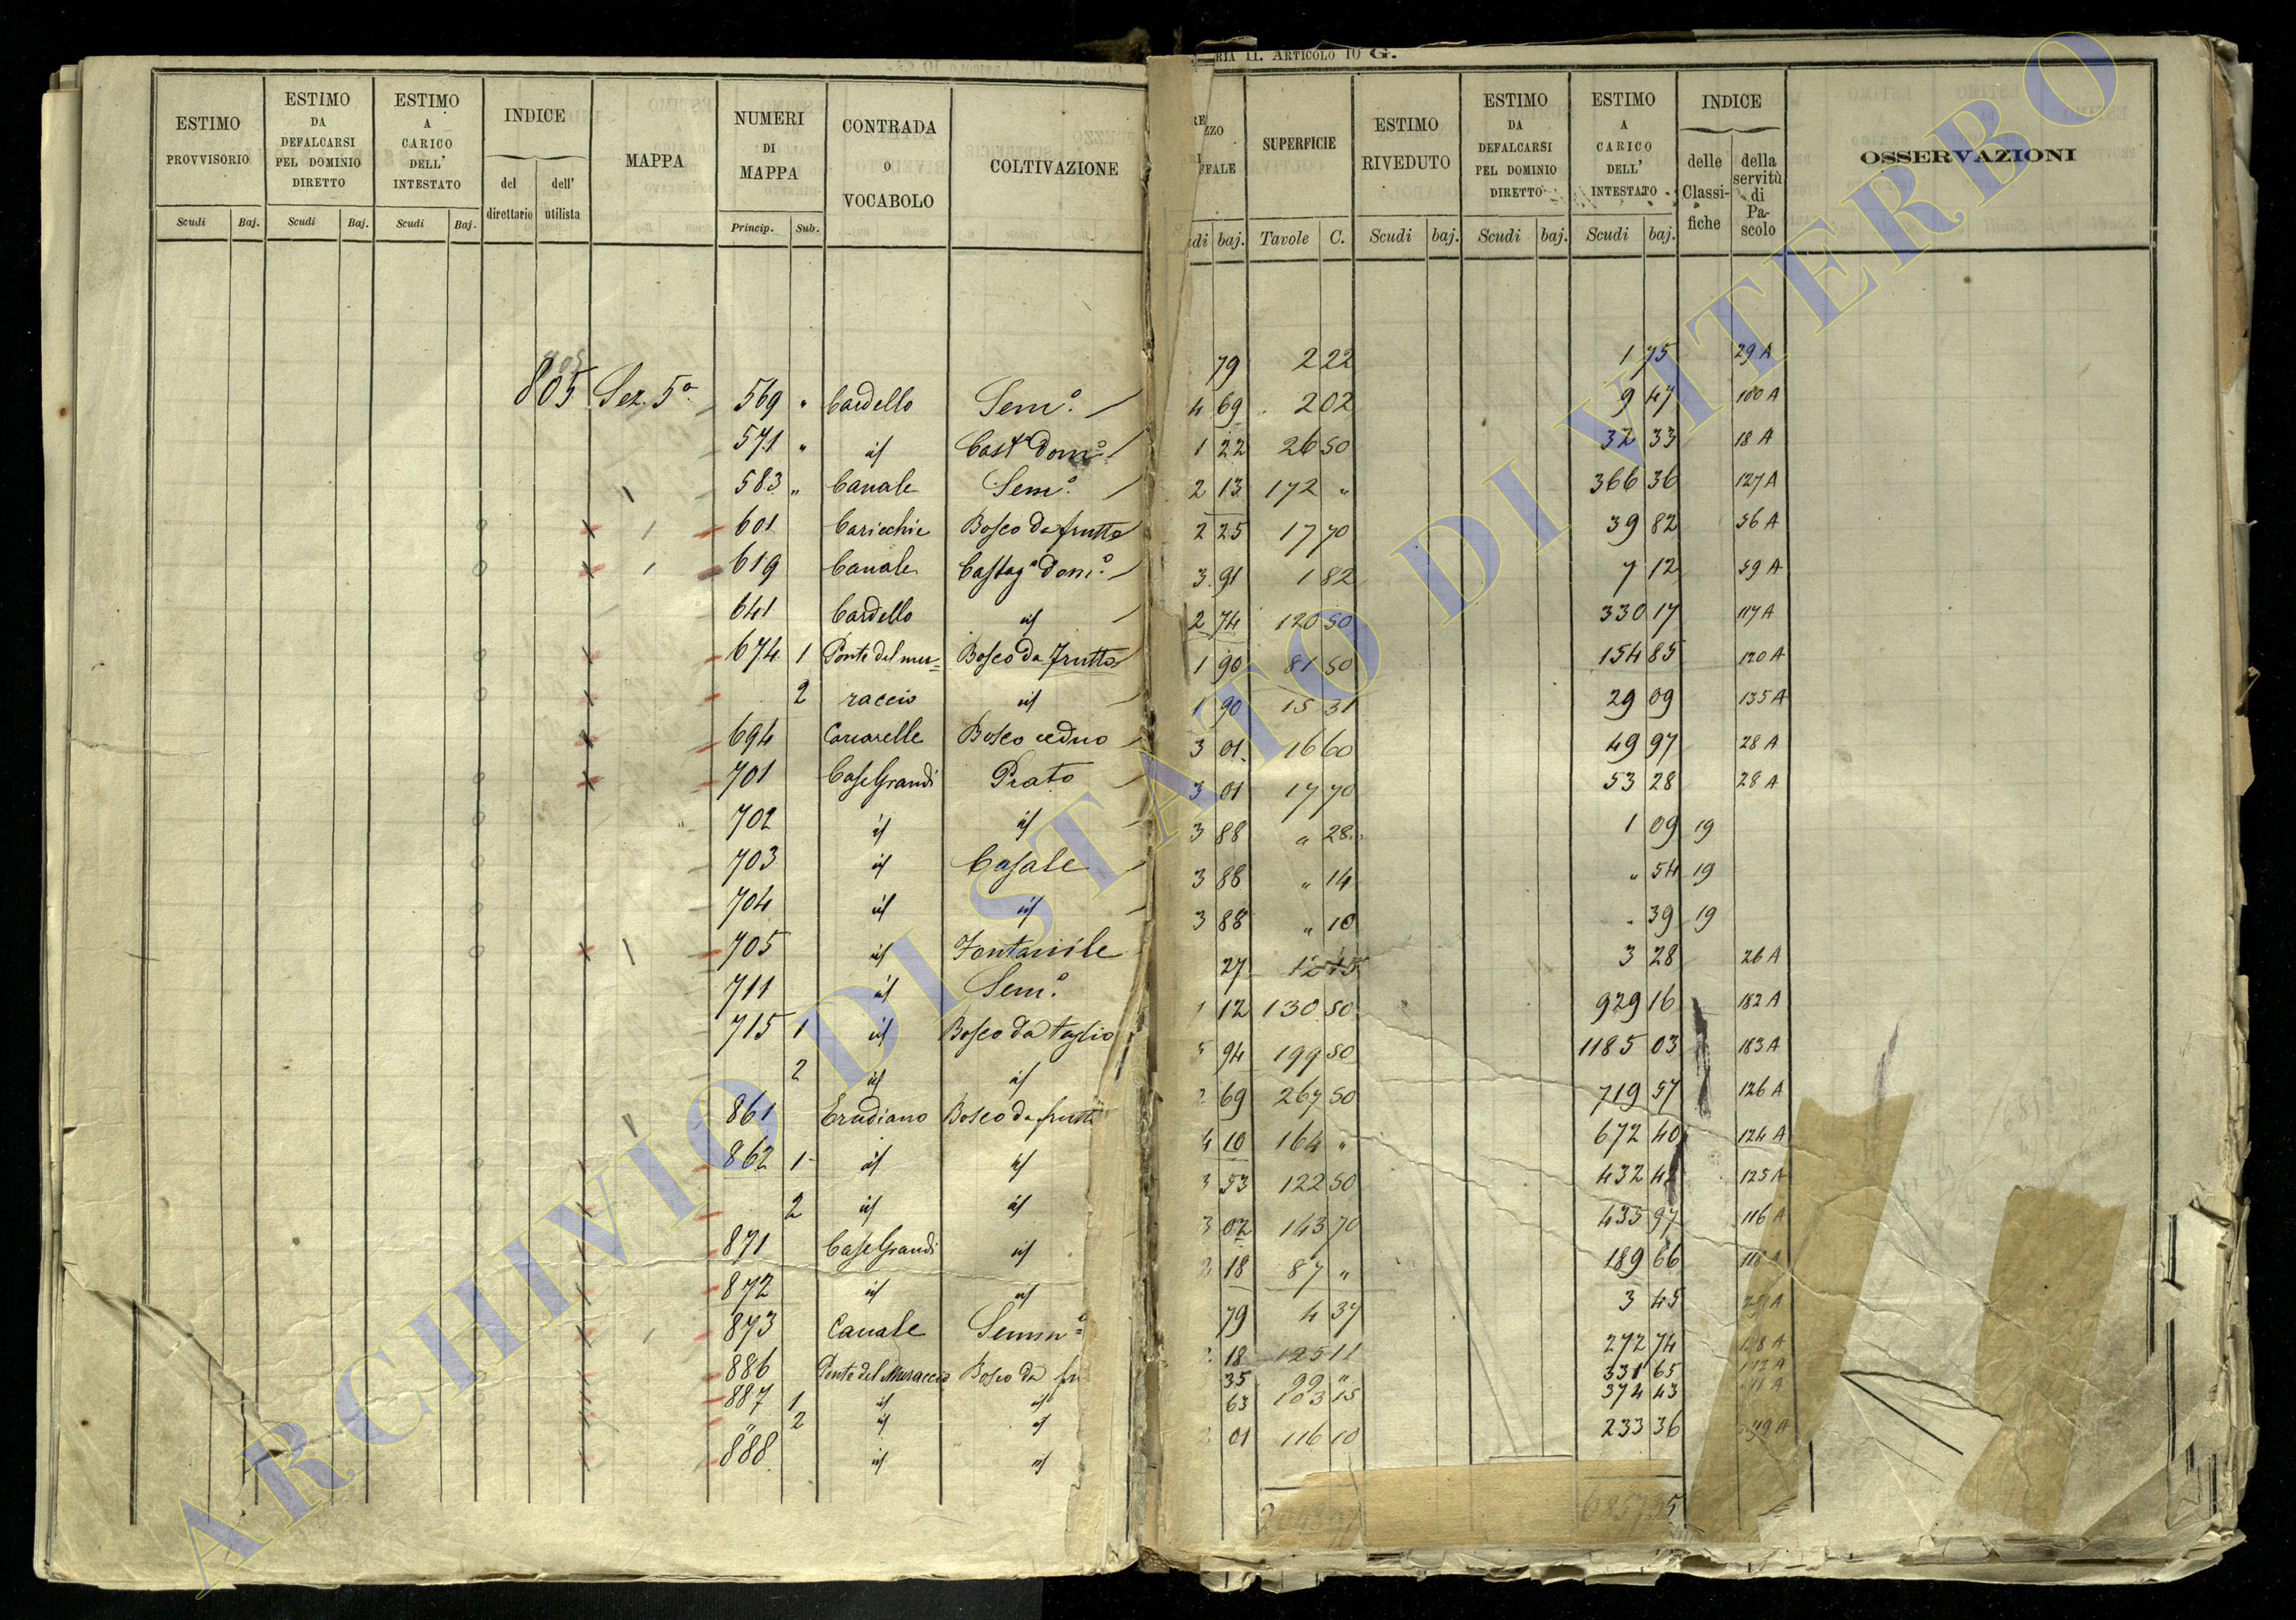 RIA II. ARTICOLO 10 G.
ESTIMO PROVVISORIO
ESTIMO DA DEFALCARSI PEL DOMINIO DIRETTO
ESTIMO A CARICO DELL' INTESTATO
INDICE
del direttario
dell' utilista
MAPPA
NUMERI DI MAPPA
CONTRADA O VOCABOLO
COLTIVAZIONE
Scudi Baj. Scudi Baj. Scudi Baj. Princip. Sub.
805 Sez. 5a 569 " Cardello Semo.
571 " id Casta domo.
583 " Canale Semo.
601 Caricchie Bosco da frutto
619 Canale Castago domo.
641 Cardello id
674 1 Ponte del mu= Bosco da frutto
2 raccio id
694 Bosco ceduo
701 Case Grandi Prato
702 id id
703 id Casale
704 id id
705 id Fontanile
711 id Semo.
715 1 id Bosco da taglio
2 id id
861 Bosco da frutto
862 1 id id
2 id id
871 Case Grandi id
872 id id
873 Canale Semino
886 Ponte del Muraccio Bosco da fru
887 1 id id
" 2 id id
888 id id
SUPERFICIE
ESTIMO RIVEDUTO
ESTIMO DA DEFALCARSI PEL DOMINIO DIRETTO
ESTIMO A CARICO DELL' INTESTATO
INDICE
delle Classifiche
della servitù di Pascolo
OSSERVAZIONI
baj. Tavole C. Scudi baj. Scudi baj. Scudi baj.
79 2 22 1 75 29 A
4 69 2 02 9 47 100 A
1 22 26 50 32 33 18 A
2 13 172 " 366 36 127 A
2 25 17 70 39 82 56 A
3 91 1 82 7 12 59 A
2 74 120 50 330 17 117 A
1 90 81 50 154 85 120 A
1 90 15 31 29 09 135 A
3 01 16 60 49 97 28 A
3 01 17 70 53 28 28 A
3 88 " 28 1 09 19
3 88 " 14 " 54 19
3 88 " 10 " 39 19
27 12 15 3 28 26 A
12 130 50 929 16 182 A
94 199 50 1185 03 183 A
69 267 50 719 57 126 A
4 10 164 " 672 40 124 A
3 53 122 50 432 42 125 A
3 02 143 70 433 97 116 A
18 87 " 189 66
79 4 37 3 45
18 125 11 272 74
35 99 " 331 65
63 103 15 374 43
01 116 10 233 36
ARCHIVIO DI STATO DI VITERBO